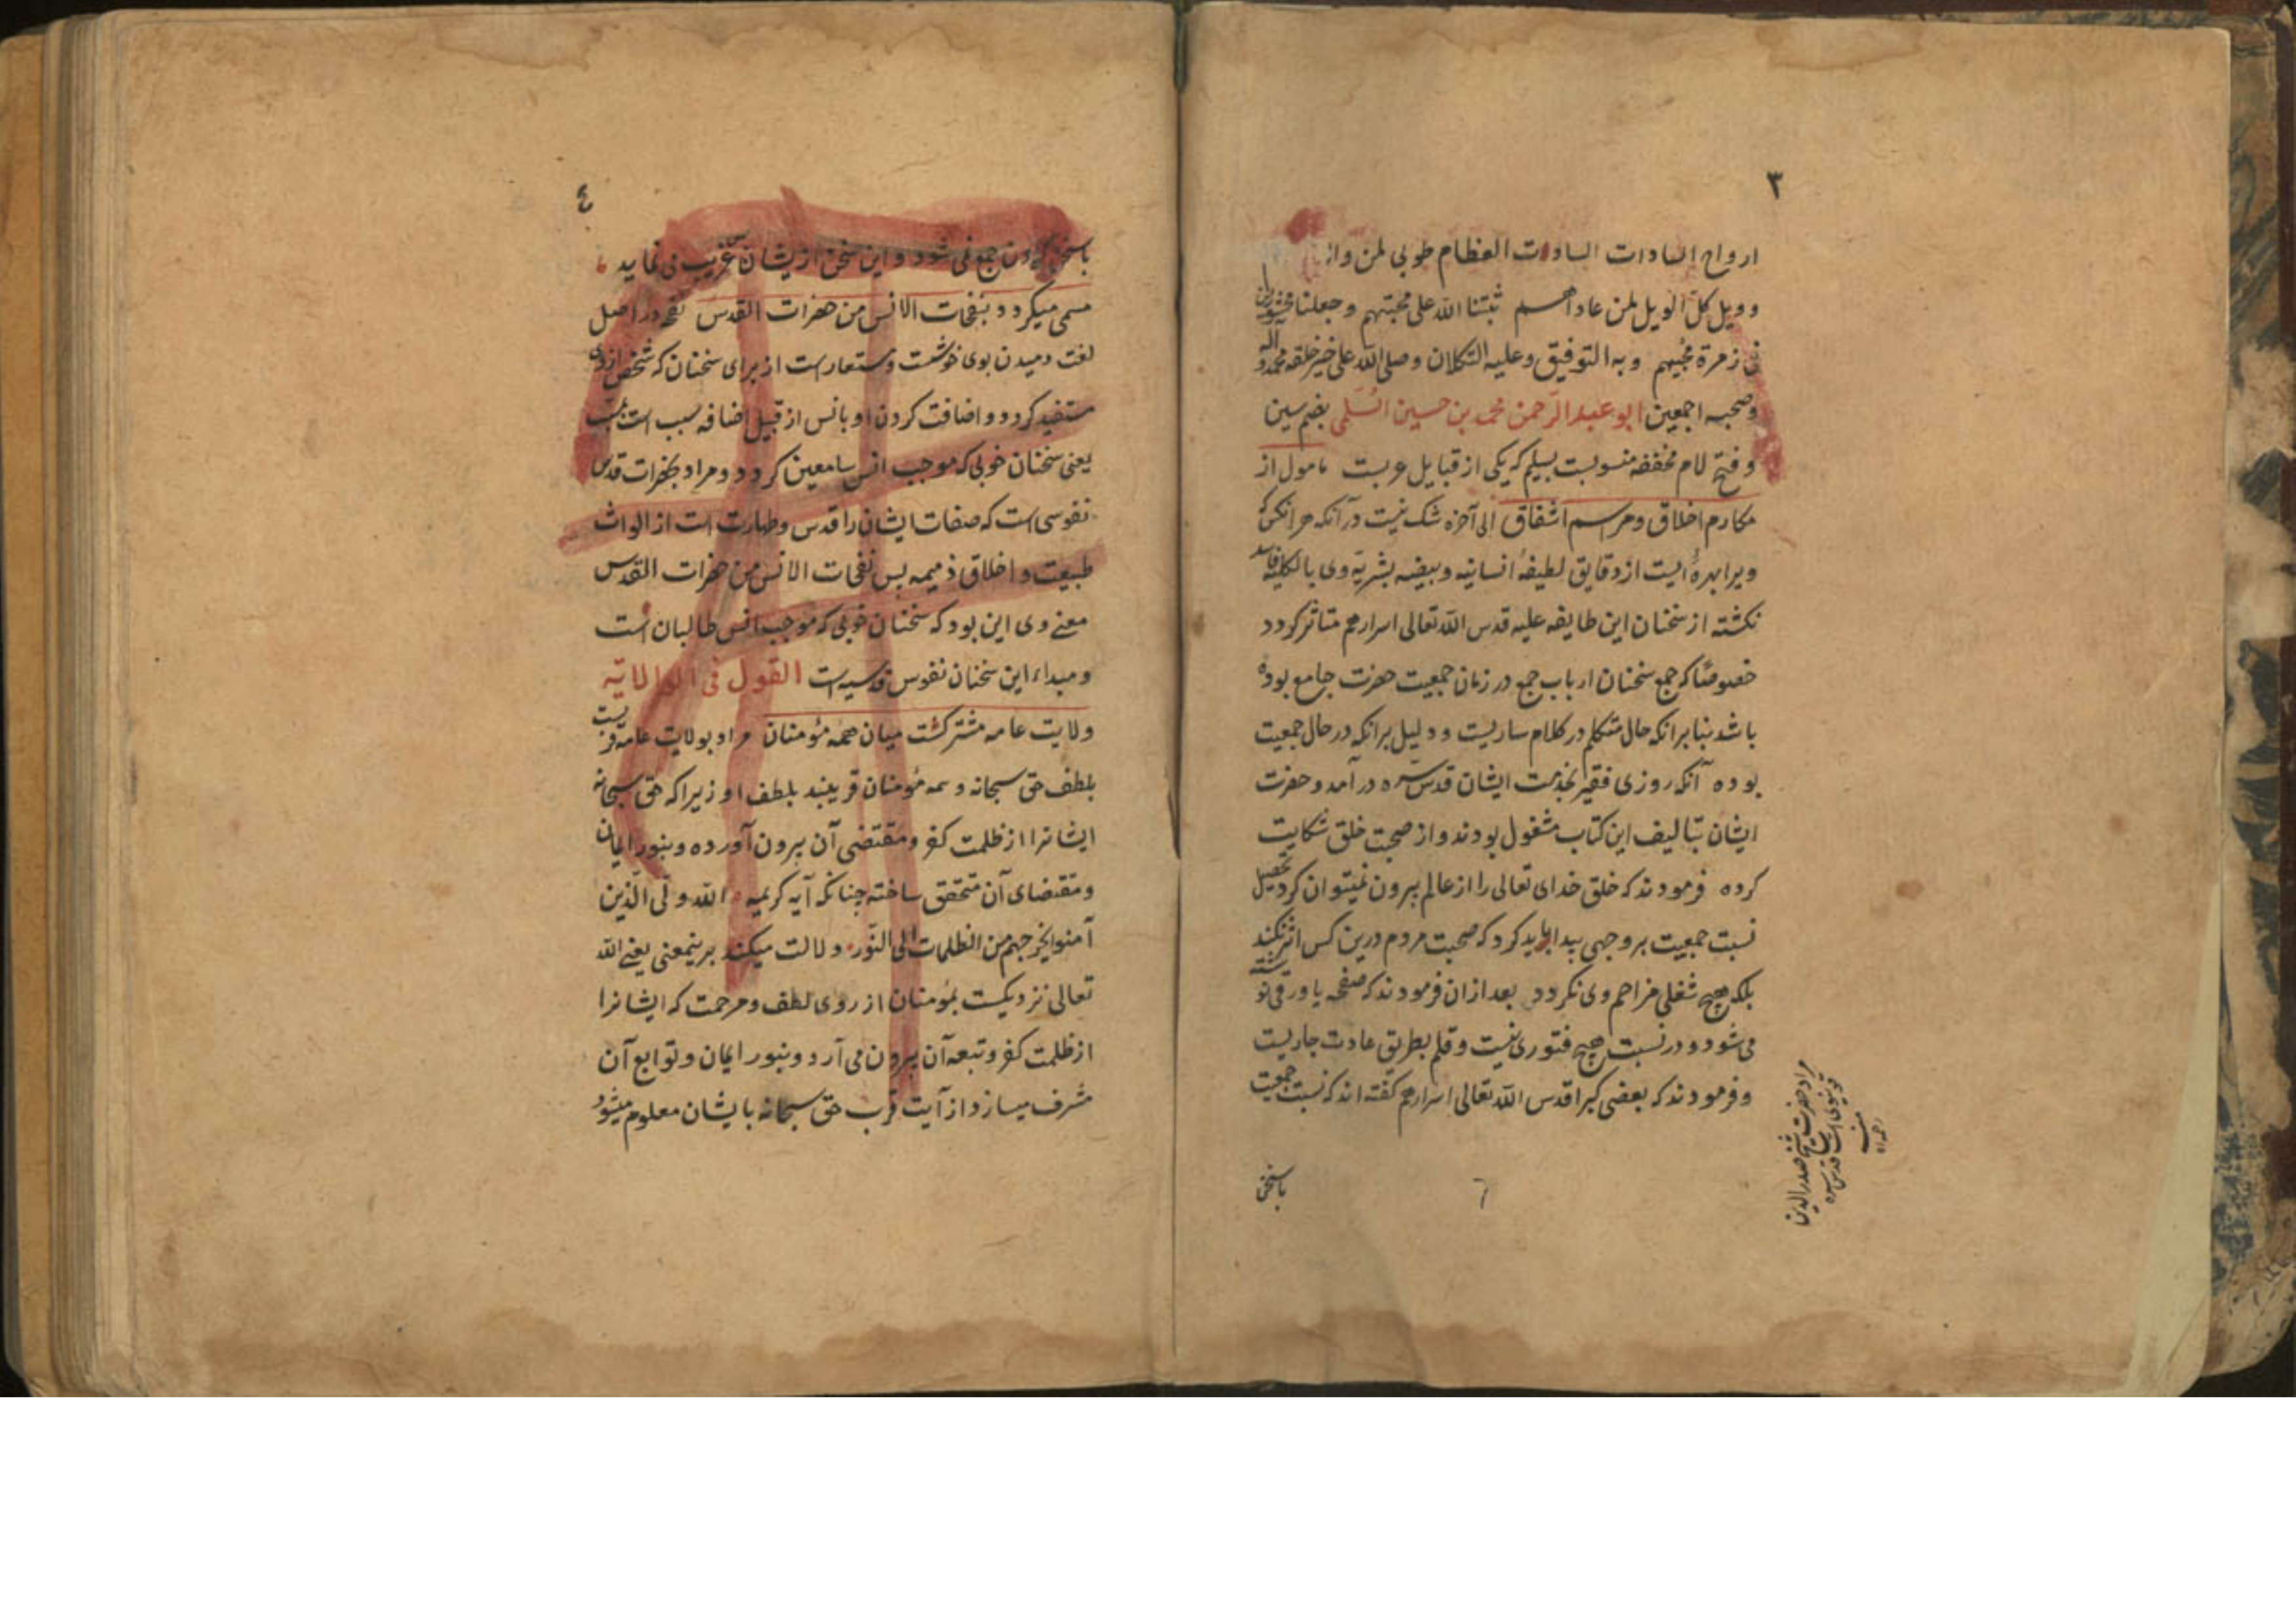 ٣
ارواح السادات السادات العظام طوبی لمن
وویل کل الویل لمن عاداهم ثبتنا الله علی محبتهم وجعلنا
فی زمرة محبیهم وبه التوفیق وعلیه التکلان وصلی الله علی خیر خلقه محمد وآله
وصحبه اجمعین ابو عبد الرّحمن محمد بن حسین السُلَمی بضم سین
وفتح لام مخففه منسوبست بسلیم که یکی از قبایل عربست مامول از
مکارم اخلاق ومراسم اشفاق الی آخره شک نیست در آنکه هر آنکس که
ویرا بهرهٔ ایست از دقایق لطیفهٔ انسانیه وبیضه بشریهٔ وی بالکلیه فاسد
نکشته از سخنان این طایفه علیه قدس الله تعالی اسرارهم متاثر کردد
خصوصًا که جمع سخنان ارباب جمع در زمان جمعیت حضرت جامع بوده
باشد بنا بر انکه حال متکلم در کلام ساریست ودلیل بر انکه در حال جمعیت
بوده آنکه روزی فقیر بخدمت ایشان قدس سره در آمد وحضرت
ایشان بتالیف این کتاب مشغول بودند واز صحبت خلق شکایت
کرده فرمودند که خلق خدای تعالی را از عالم بیرون نمیتوان کرد تحصیل
نسبت جمعیت بر وجهی پیدا باید کرد که صحبت مردم درین کس اثر نکند
بلکه هیچ شغلی مزاحم وی نکردد بعد ازان فرمودند که صفحه یا ورقی نوشته
می شود ودر نسبت هیچ فتوری نیست وقلم بطریق عادت جاریست
وفرمودند که بعضی کبرا قدس الله تعالی اسرارهم کفته اند که نسبت جمعیت
مراد حضرت شیخ صدر الدین
قونیوی است قدس سره
منه
رحمه الله
باسخن
٤
باسخن کردن جمع نمی شود واین سخن از یشان غریب می نماید
مسمی میکردد بنفحات الانس من حضرات القدس نفحه در اصل
لغت دمیدن بوی خوشست ومستعار است از برای سخنان که شخص ازو
مستفید کردد واضافت کردن او بانس از قبیل اضافه سبب است
یعنی سخنان خوبی که موجب انس سامعین کردد ومراد بحضرات قدس
نفوسی است که صفات ایشان را قدس وطهارت است از الواث
طبیعت واخلاق ذمیمه بس نفحات الانس من حضرات القدس
معنی وی این بود که سخنان خوبی که موجب انس طالبان است
ومبداء این سخنان نفوس قدسیه است القول فی الولایة
ولایت عامه مشترکست میان همه مؤمنان مراد بولایت عامه قربست
بلطف حق سبحانه وهمه مؤمنان قریبند بلطف او زیرا که حق سبحانه
ایشانرا از ظلمت کفر ومقتضی آن بیرون آورده وبنور ایمان
ومقتضای آن متحقق ساخته چنانکه آیه کریمه الله ولی الّذین
آمنوا یخرجهم من الظلمات الی النّور دلالت میکند برینمعنی یعنی الله
تعالی نزدیکست بمؤمنان از روی لطف ومرحمت که ایشانرا
از ظلمت کفر وتبعه آن بیرون می آرد وبنور ایمان وتوابع آن
مشرف میسازد از آیت قرب حق سبحانه بایشان معلوم میشود